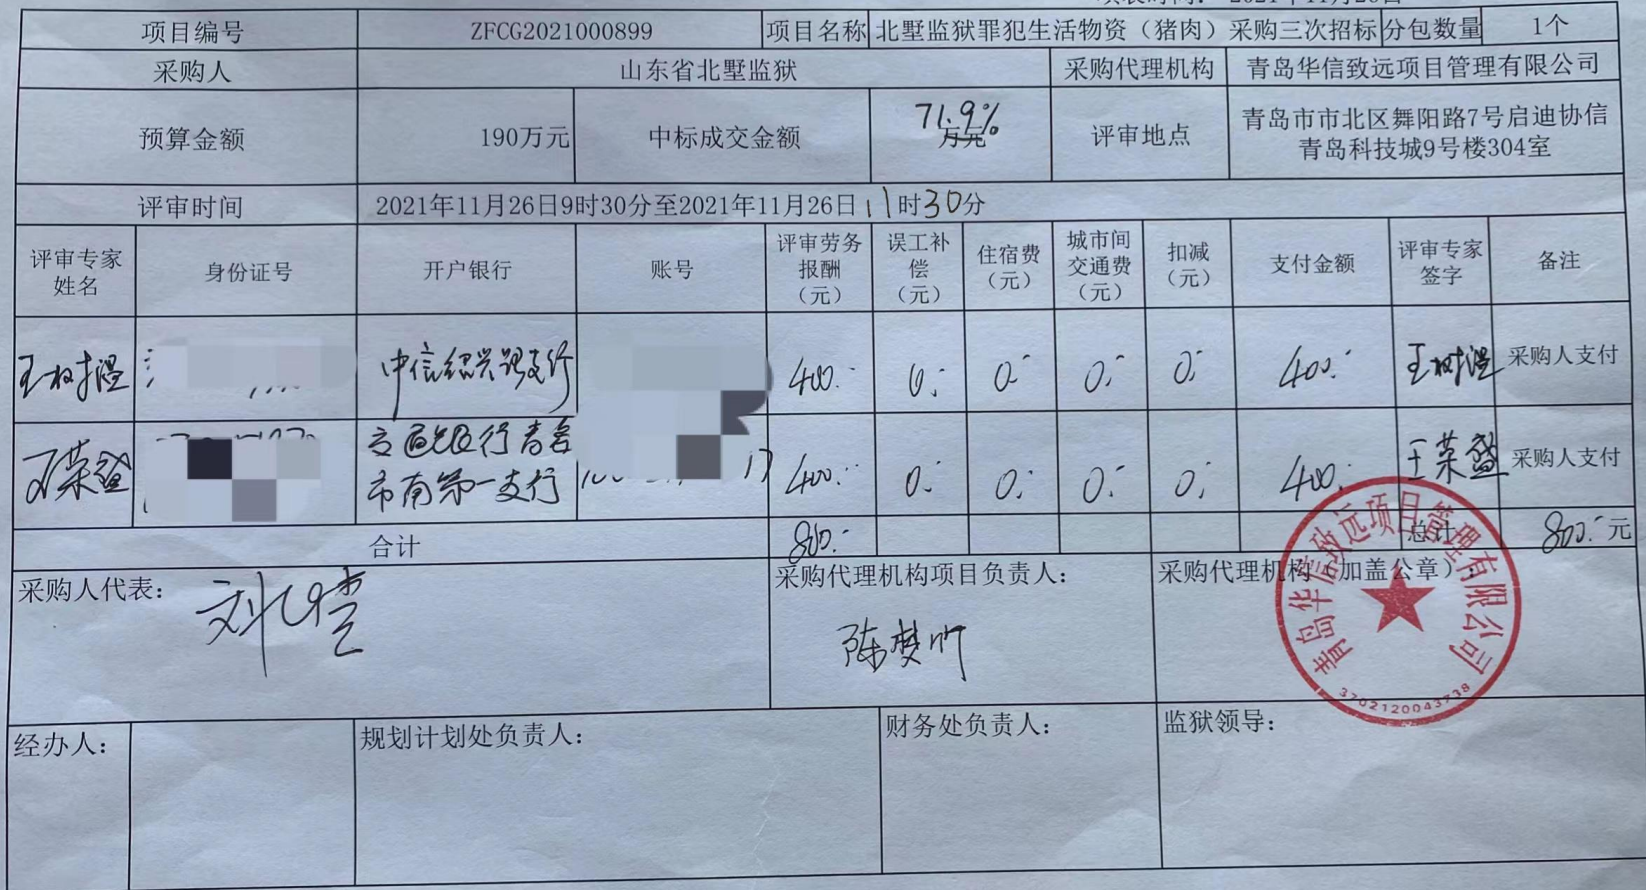 项目编号 ZFCG2021000899 项目名称 北墅监狱罪犯生活物资（猪肉）采购三次招标 分包数量 1个
采购人 山东省北墅监狱 采购代理机构 青岛华信致远项目管理有限公司
预算金额 190万元 中标成交金额 71.9% 万元 评审地点 青岛市市北区舞阳路7号启迪协信
青岛科技城9号楼304室
评审时间 2021年11月26日9时30分至2021年11月26日11时30分
评审专家
姓名
身份证号
开户银行
账号
评审劳务
报酬
（元）
误工补
偿
（元）
住宿费
（元）
城市间
交通费
（元）
扣减
（元）
支付金额
评审专家
签字
备注
王树温 中信绍兴路支行 400.- 0.- 0.- 0.- 0.- 400.- 王树温 采购人支付
王荣盛 交通银行青岛
市南第一支行 400.- 0.- 0.- 0.- 0.- 400.- 王荣盛 采购人支付
合计 800.- 总计 800.- 元
采购人代表：
采购代理机构项目负责人：
陈梦昕
采购代理机构（加盖公章）：
青岛华信致远项目管理有限公司
3702120043738
经办人：
规划计划处负责人：
财务处负责人：
监狱领导：